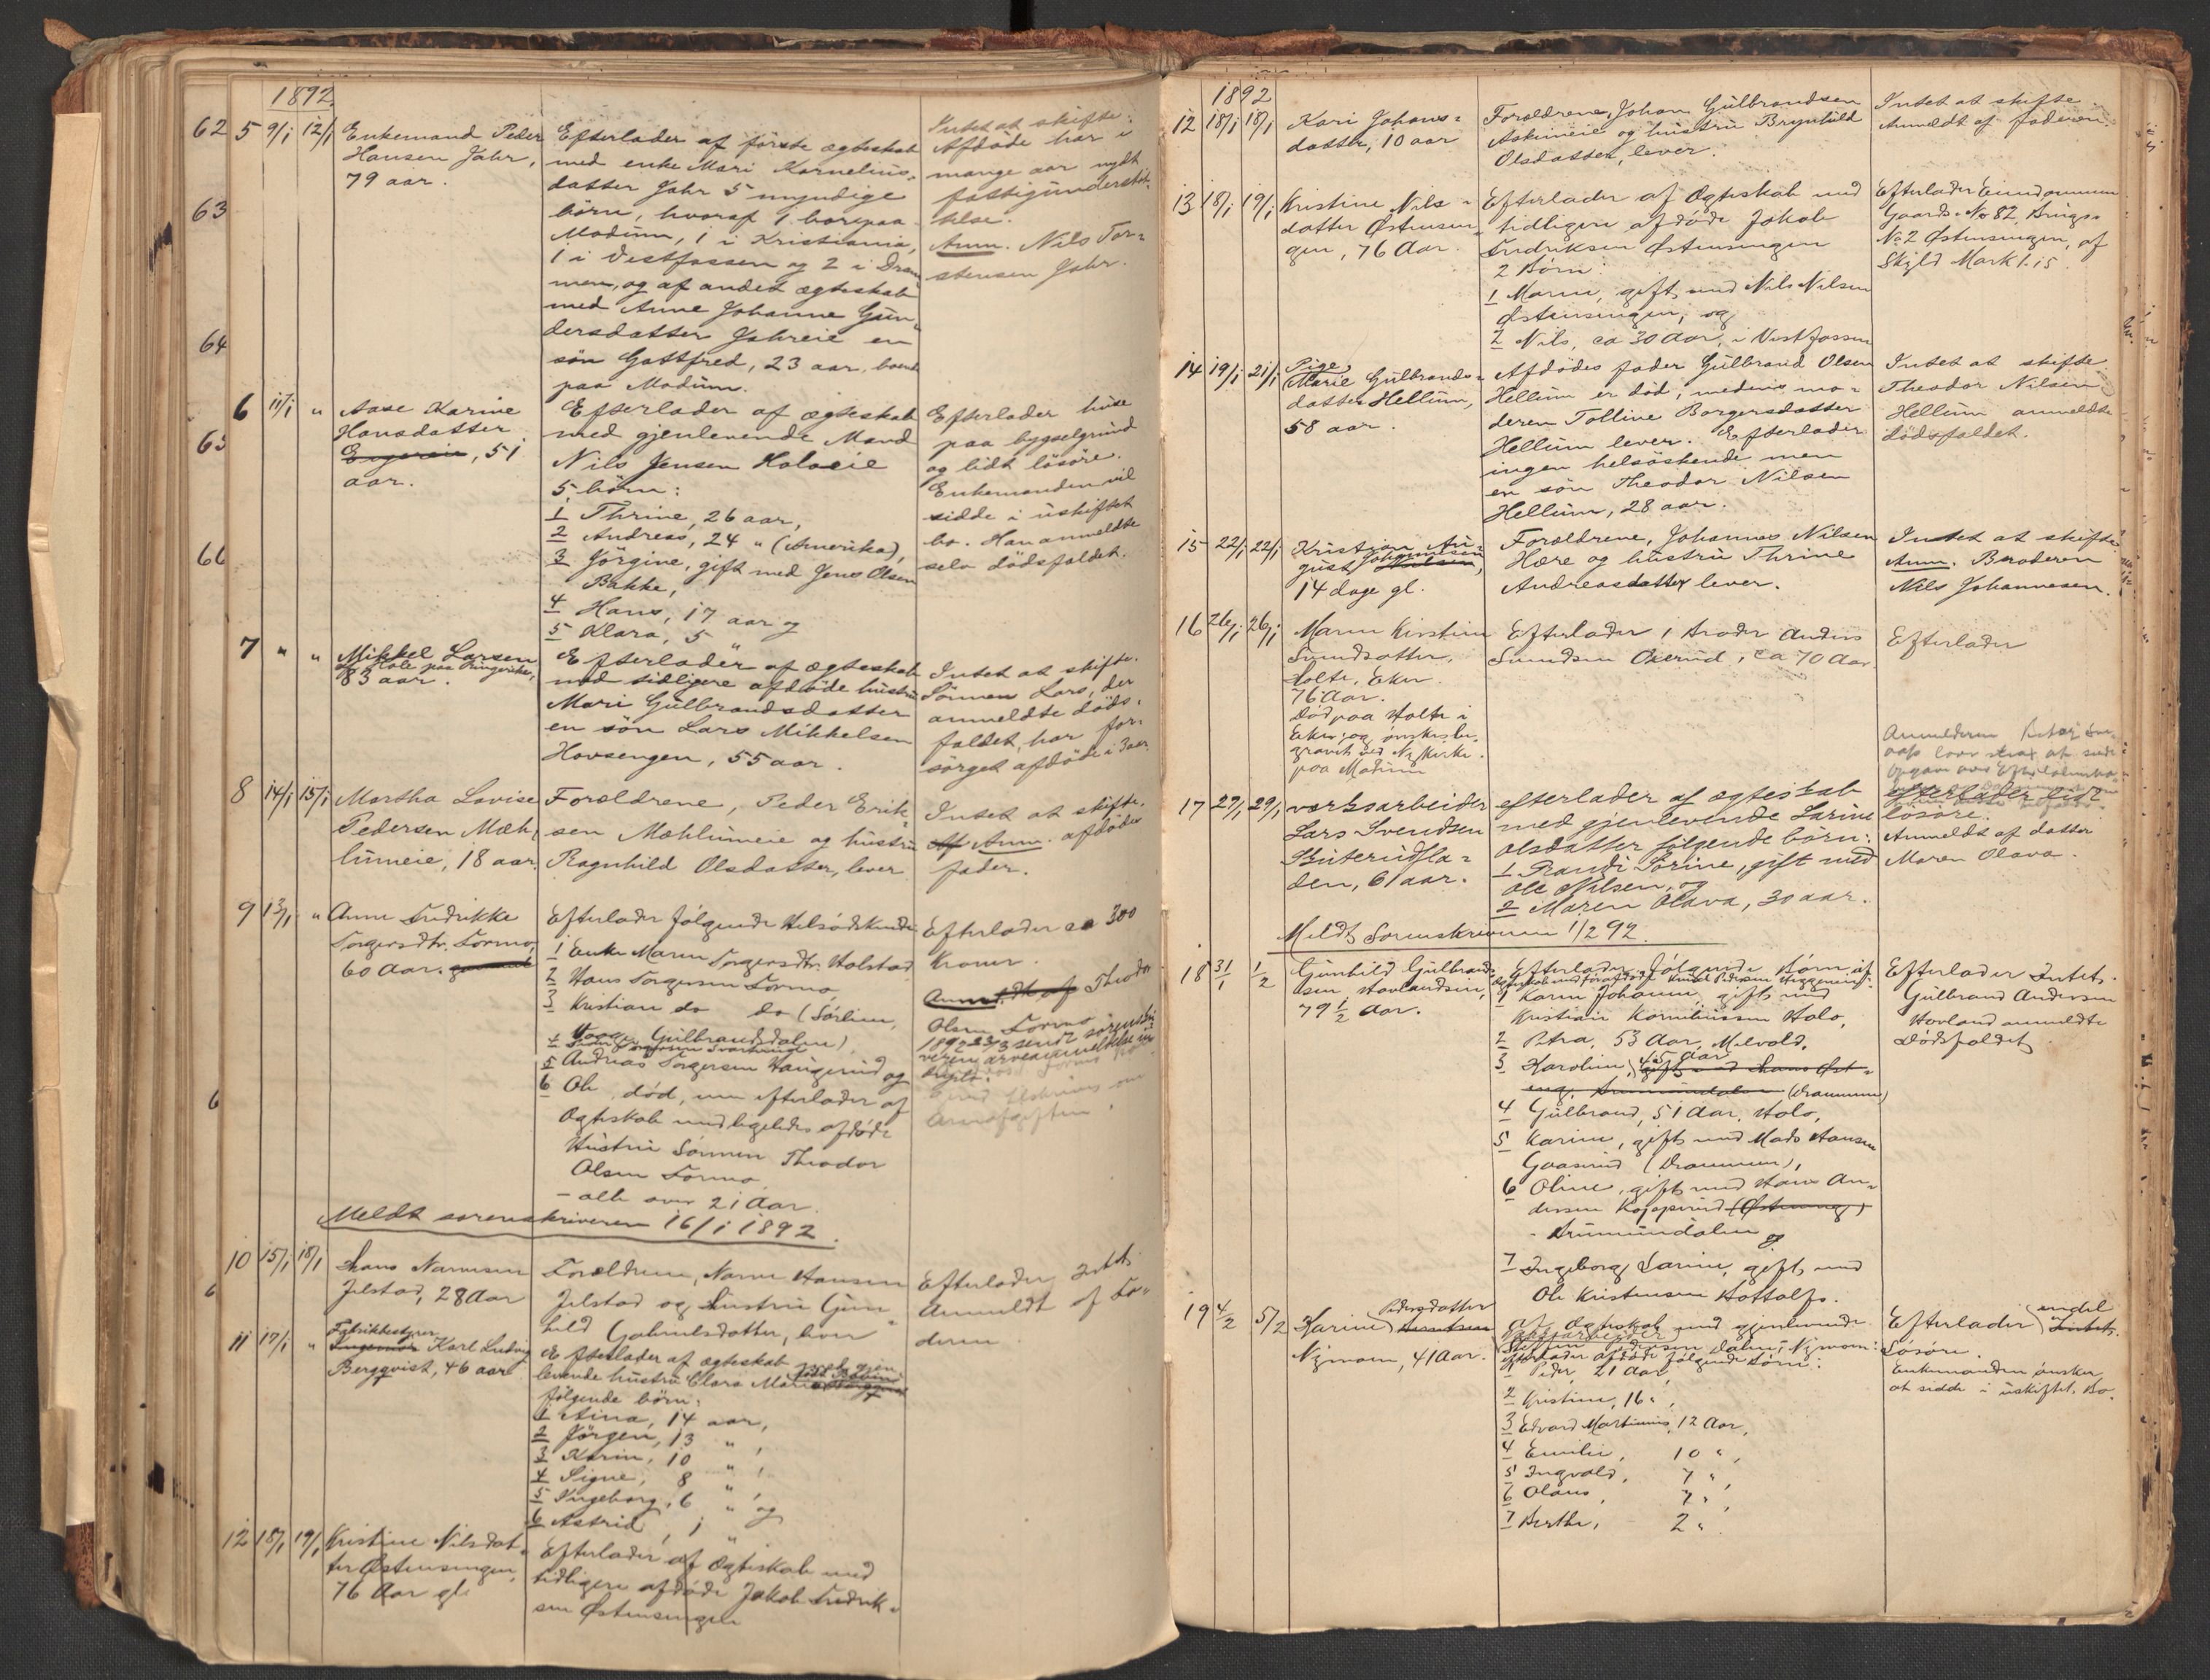 1892
62
5 9/1 12/1
Enkemand Peder
Hansen Jahr,
79 aar.
Efterlader af første ægteskab
med enke Mari Kornelius-
datter Jahr 5 myndige
börn, hvoraf 1 bor paa
Modum, 1 i Kristiania,
1 i Vestfossen og 2 i Dram
men, og af andet ægteskab
med Anne Johanne Gun-
dersdatter Jahreie en
sön Gottfred, 23 aar, boende
paa Modum.
Intet at skifte.
Afdöde har i
mange aar nydt
fattigunderstöt-
telse.
Anm. Nils Tor-
stensen Jahr.
63
64
6 11/1 "
Aase Karine
Hansdatter
51
aar.
Efterlader af ægteskab
med gjenlevende Mand
Nils Jensen Holoeie
5 börn:
1 Thrine, 26 aar,
2 Andreas, 24 " (Amerika),
3 Jörgine, gift med Jens Olsen
Bakke,
4 Hans, 17 aar og
5 Klara, 5 "
Efterlader huse
paa bygselgrund
og lidt lösöre.
Enkemanden vil
sidde i uskiftet
bo. Han anmeldte
selv dödsfaldet.
65
66
7 " "
Mikkel Larsen
Hole paa Ringerike,
83 aar.
Efterlader af ægteskab
med tidligere afdöde hustru
Mari Gulbrandsdatter
en sön Lars Mikkelsen
Hovsengen, 55 aar.
Intet at skifte.
Sönnen Lars, der
anmeldte döds-
faldet, har for-
sörget afdöde i 3 aar.
8 14/1 15/1
Martha Lovise
Pedersen Mæh-
lumeie, 18 aar.
Forældrene, Peder Erik-
sen Mæhlumeie og hustru
Ragnhild Olsdatter, lever
Intet at skifte.
Af Anm. afdödes
fader.
9 13/1 "
Anne Fredrikke
Torgersdtr. Formo,
60 Aar.
Efterlader følgende Helsødskende
1 Enke Maren Torgersdtr. Holstad
2 Hans Torgersen Formo
3 Kristian do do (Sörlien,
Gulbrandsdalen)
4
5 Andreas Torgersen Haugerud og
6 Ole, død, men efterlader af
Ægteskab med ligeledes afdøde
Hustru Sønnen Theodor
Olsen Formo
- alle over 21 Aar.
Efterlader ca 300
Kroner.
Anmeldt af Theodor
Olsen Formo
Meldt sorenskriveren 16/1 1892.
6
10 15/1 18/1
Hans Narvesen
Jelstad, 28 Aar
Forældrene, Narve Hansen
Jelstad og Hustru Gun-
hild Gabrielsdatter, lever
Efterlader Intet.
Anmeldt af Fa-
deren.
6
11 17/1 "
Fabrikbestyrer
Ingeniör Karl Ludvig
Bergqvist, 46 aar
Efterlader af ægteskab med gjen-
levende hustru Clara Marie
følgende börn:
1 Aina, 14 aar,
2 Jörgen, 13 " ,
3 Karin, 10 " ,
4 Signe, 8 " ,
5 Ingeborg, 6 " og
6 Astrid, 1 "
12 18/1 19/1
Kristine Nilsdat-
ter Østensengen,
76 Aar gl.
Efterlader af Ægteskab med
tidligere afdøde Jakob Fredrik-
sen Østensengen
1892
12 18/1 18/1
Kari Johans-
datter, 10 aar
Forældrene, Johan Gulbrandsen
Askimeie og hustru Brynhild
Olsdatter, lever.
Intet at skifte.
Anmeldt af faderen.
13 18/1 19/1
Kristine Nils-
datter Østensen-
gen, 76 Aar.
Efterlader af Ægteskab med
tidligere afdøde Jakob
Fredriksen Østensengen
2 Børn:
1 Maren, gift med Nils Nilsen
Østensengen, og
2 Nils, ca 30 Aar, i Vestfossen
Efterlader Eiendommen
Gaards-No 82 Brugs-
No 2 Østensengen, af
Skyld Mark 1.15.
14 19/1 21/1
Pige
Marie Gulbrands-
datter Hellum,
58 aar.
Afdödes fader Gulbrand Olsen
Hellum er död, medens mo-
deren Tolline Borgersdatter
Hellum lever. Efterlader
ingen helsöskende men
en sön Theodor Nilsen
Hellum, 28 aar.
Intet at skifte
Theodor Nilsen
Hellum anmeldte
dödsfaldet.
15 22/1 22/1
Kristian Au-
gust Johannesen
14 dage gl.
Forældrene, Johannes Nilsen
Hære og hustru Thrine
Andreasdatter lever.
Intet at skifte.
Anm. Broderen
Nils Johannesen.
16 26/1 26/1
Maren Kirstine
Svendsdatter,
Holte, Eker.
76 Aar.
Død paa Holte i
Eker, og ønskes be-
gravet ved Ny kirke
paa Modum
Efterlader 1 Broder Anders
Svendsen Oxerud, ca 70 Aar
Efterlader
17 27/1 29/1
værksarbeider
Lars Svendsen
Buterudfla-
den, 61 aar.
efterlader af ægteskab
med gjenlevende Larine
olsdatter følgende börn:
1 Randi Sörine, gift med
Ole Nilsen, og
2 Maren Olava, 30 aar.
efterlader lidt
lösöre.
Anmeldt af datter
Maren Olava.
Meldt Sorenskriveren 1/2 92.
18 31/1 1/2
Gunhild Gulbrand-
sen Hovlandseie,
79 1/2 Aar.
Efterlader følgende Børn af
1 Karen Johanne, gift med
Kristian Korneliussen Holo,
2 Petra, 53 Aar, Melvold,
3 Karoline, 45 Aar
(Drammen)
4 Gulbrand, 51 Aar, Holo,
5 Karine, gift med Mads Hansen
Gaaserud (Drammen),
6 Oline, gift med Hans An-
dersen Kopperud (Østeneng)
Krumundalen og
7 Ingeborg Larine, gift med
Ole Kristensen Hottolfs.
Efterlader Intet.
Gulbrand Andersen
Hovland anmeldte
Dødsfaldet
19 4/2 5/2
Pedersdatter
Karine
Nymoen, 41 Aar.
Af Ægteskab med gjenlevende
efterlader afdøde følgende Børn:
1 Peder, 21 Aar,
2 Kristine, 16 " ,
3 Edvard Martinius, 12 Aar,
4 Emilie, 10 " ,
5 Ingvald, 7 " ,
6 Olaus, 7 " ,
7 Berthe, 2 " .
Efterlader endel
Løsøre.
Enkemanden ønsker
at sidde i uskiftet Bo.